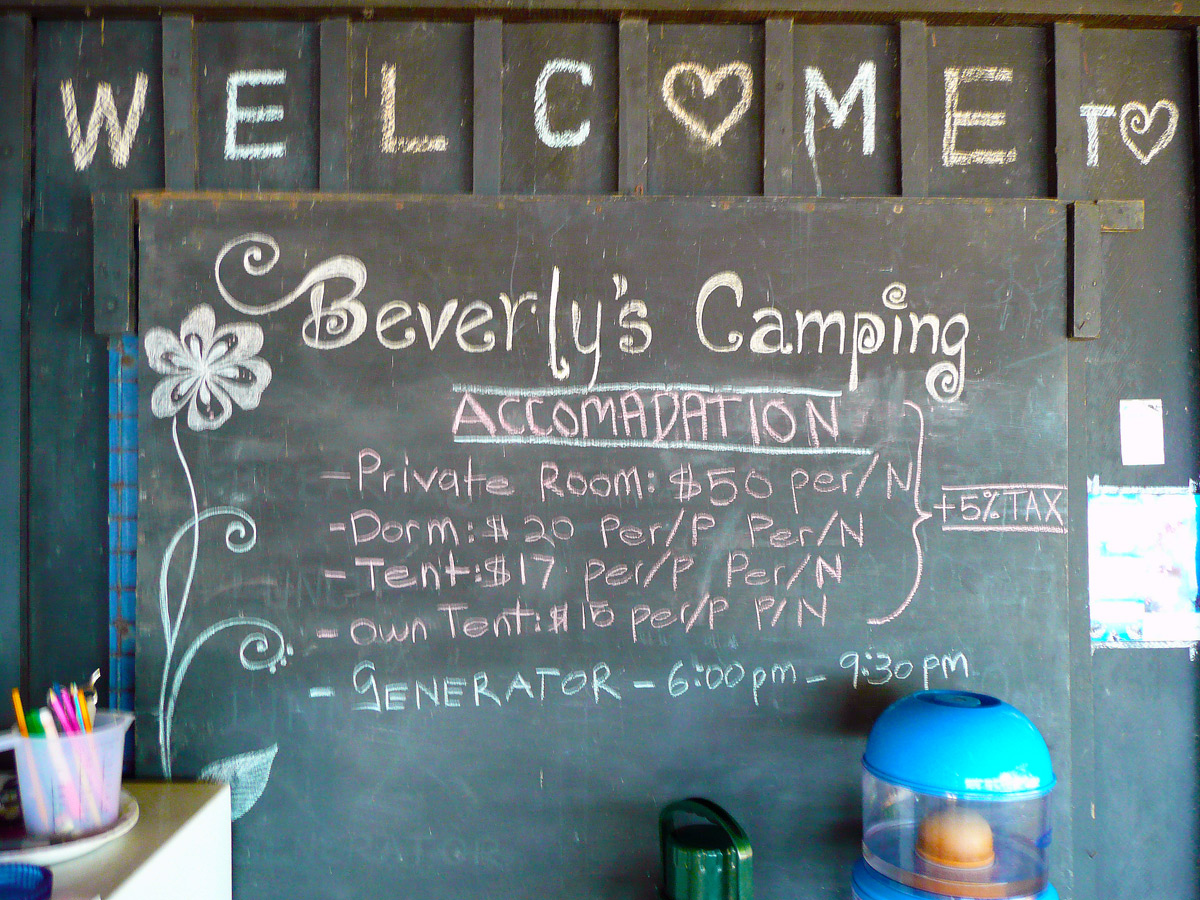 WELC♡ME TO
Beverly's Camping
ACCOMADATION
-Private Room: $50 per/N
-Dorm: $20 Per/P Per/N
-Tent: $17 per/P Per/N
-own Tent: $15 per/P P/N
+5% TAX
- GENERATOR - 6:00pm - 9:30pm